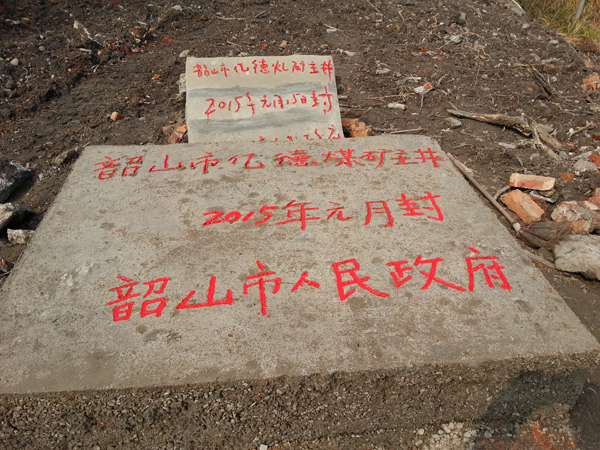 韶山市亿德煤矿主井
2015年元月15日封
韶山市亿德煤矿主井
2015年元月封
韶山市人民政府